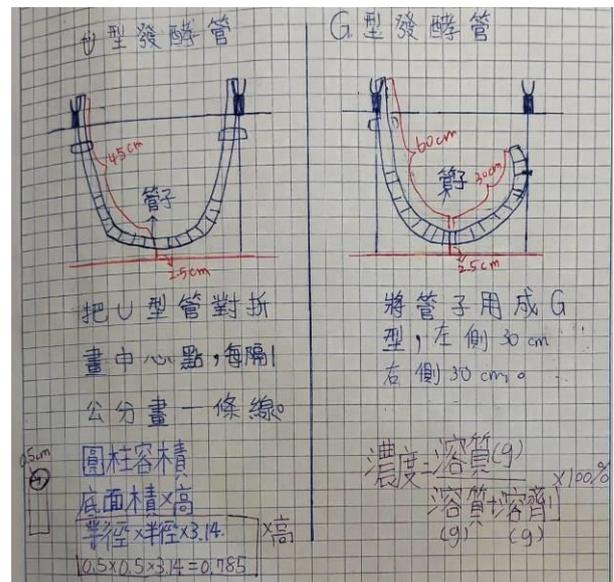 U型發酵管
45cm
管子
2.5cm
把U型管對折
畫中心點,每隔1
公分畫一條線。
0.5cm
圓柱容積
底面積×高
半徑×半徑×3.14 ×高
0.5×0.5×3.14=0.785
G型發酵管
60cm
管子
30cm
2.5cm
將管子用成G
型,左側30cm
右側30cm。
濃度=溶質(g)
溶質+溶劑 ×100%
(g) (g)